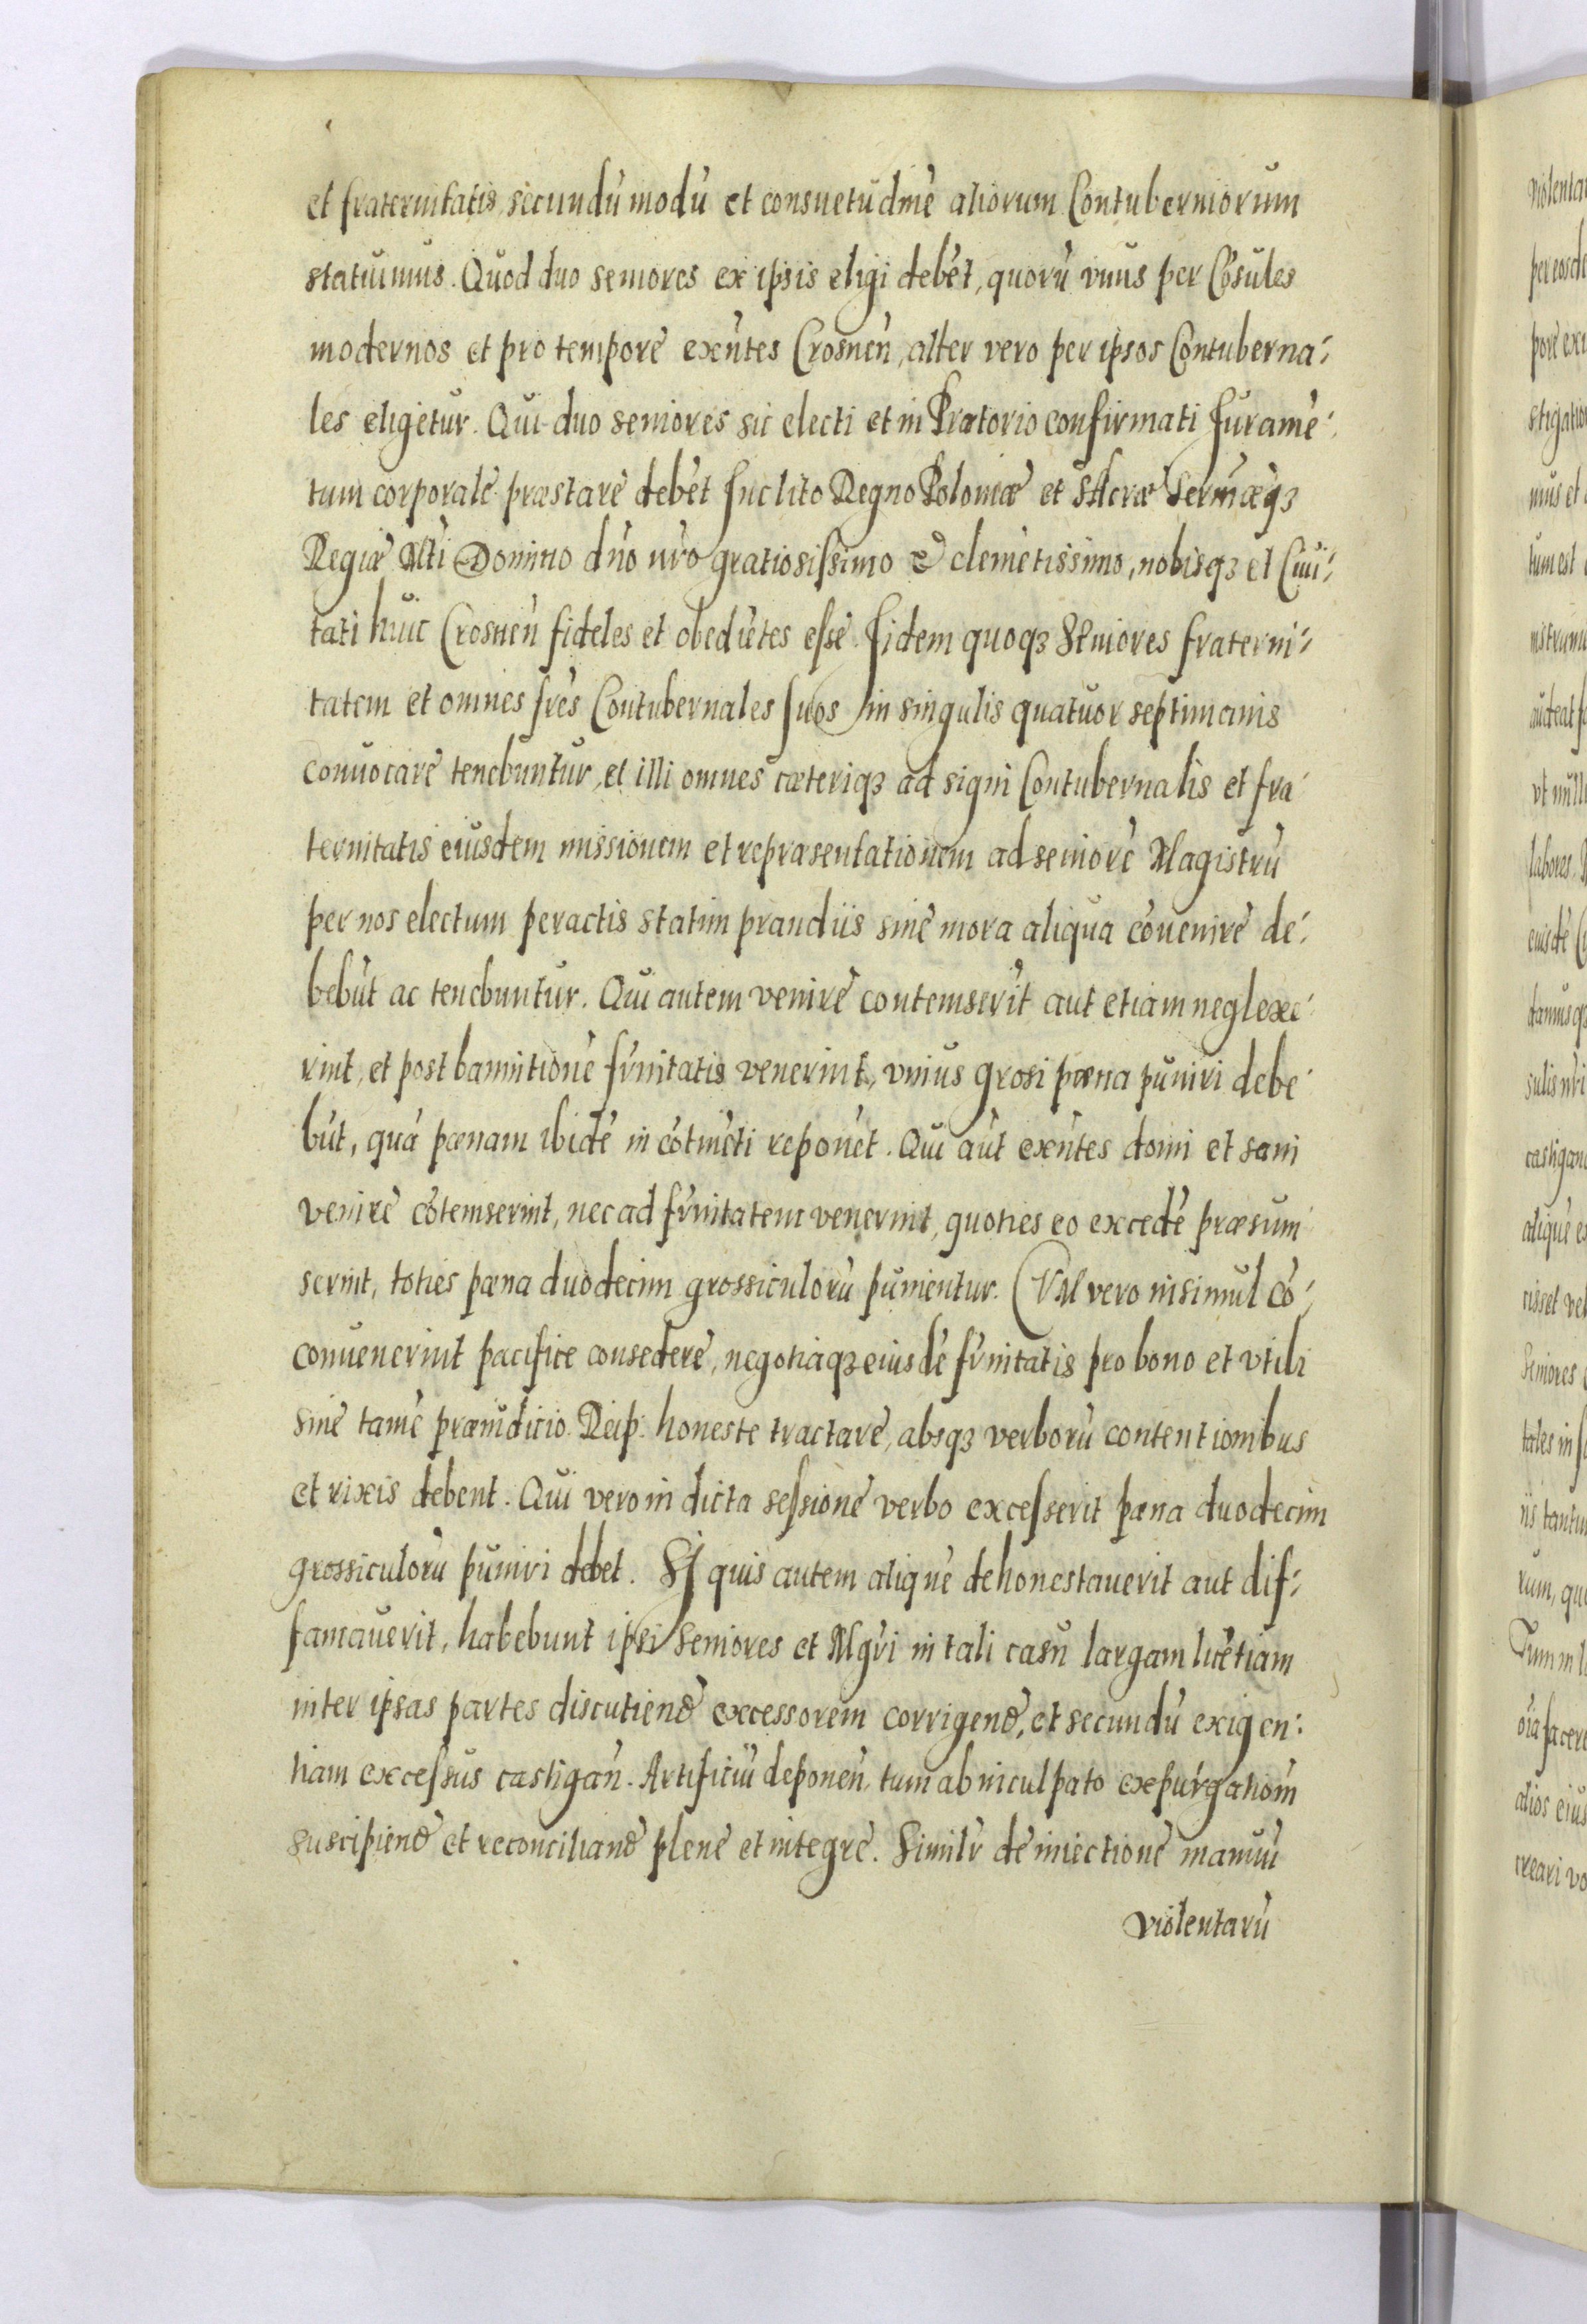 et fraternitatis, secundù modù et consuetudinè aliorum Contuberniorum
statuimus. Quod duo seniores ex ipsis eligi debét, quorù vnus per Cósules
modernos et pro tempore exñtes Crosneñ, alter vero per ipsos Contuberna-
les eligetur. Qui duo seniores sic electi et in Prætorio confirmati Juramè-
tum corporale præstare debét Inclito Regno Poloniæ et SAcræ Sermæqȝ
Regiæ Mti Domino dño nro gratiosissimo & clemètissimo, nobisqȝ et Ciui-
tati huic Crosneñ fideles et obediètes esse. Iidem quoqȝ SEniores fraterni-
tatem et omnes frès Contubernales suos in singulis quatuor septimanis
conuocare tenebuntur, et illi omnes cæteriqȝ ad signi Contubernalis et fra-
ternitatis eiusdem missionem et repræsentationem ad seniorè Magistrù
per nos electum peractis statim prandiis sine mora aliqua cóuenire de-
bebùt ac tenebuntur. Qui autem venire contemserìt aut etiam neglexe-
rint, et post bannitionè frñitatis venerint, vnius grosi pœna puniri debe-
bùt, quá pœnam ibidè in cótinèti reponèt. Qui aùt exñtes domi et sani
venire cótemserint, nec ad frñitatem venerint, quoties eo excedè præsum-
serint, toties pœna duodecim grossiculorù punientur. (VBI vero in simul có-
conuenerint pacifice consedere, negotiaqȝ eiusdè frñitatis pro bono et vtili
sine tamè præiudicio Reip. honeste tractare, absqȝ verborù contentionibus
et rixis debent. Qui vero in dicta sessione verbo excesserit pœna duodecim
grossiculorù puniri debet. SI quis autem aliquè dehonestauerit aut dif-
famauerit, habebunt ipsi Seniores et Mgri in tali casu largam licètiam
inter ipsas partes discutiend excessorem corrigend, et secundù exigen-
tiam excessus castigañ. Artificiù deponeñ, tum ab inculpato expurgationm
suscipiend et reconciliand plene et integre. Similr de iniectione manuù
violentarù